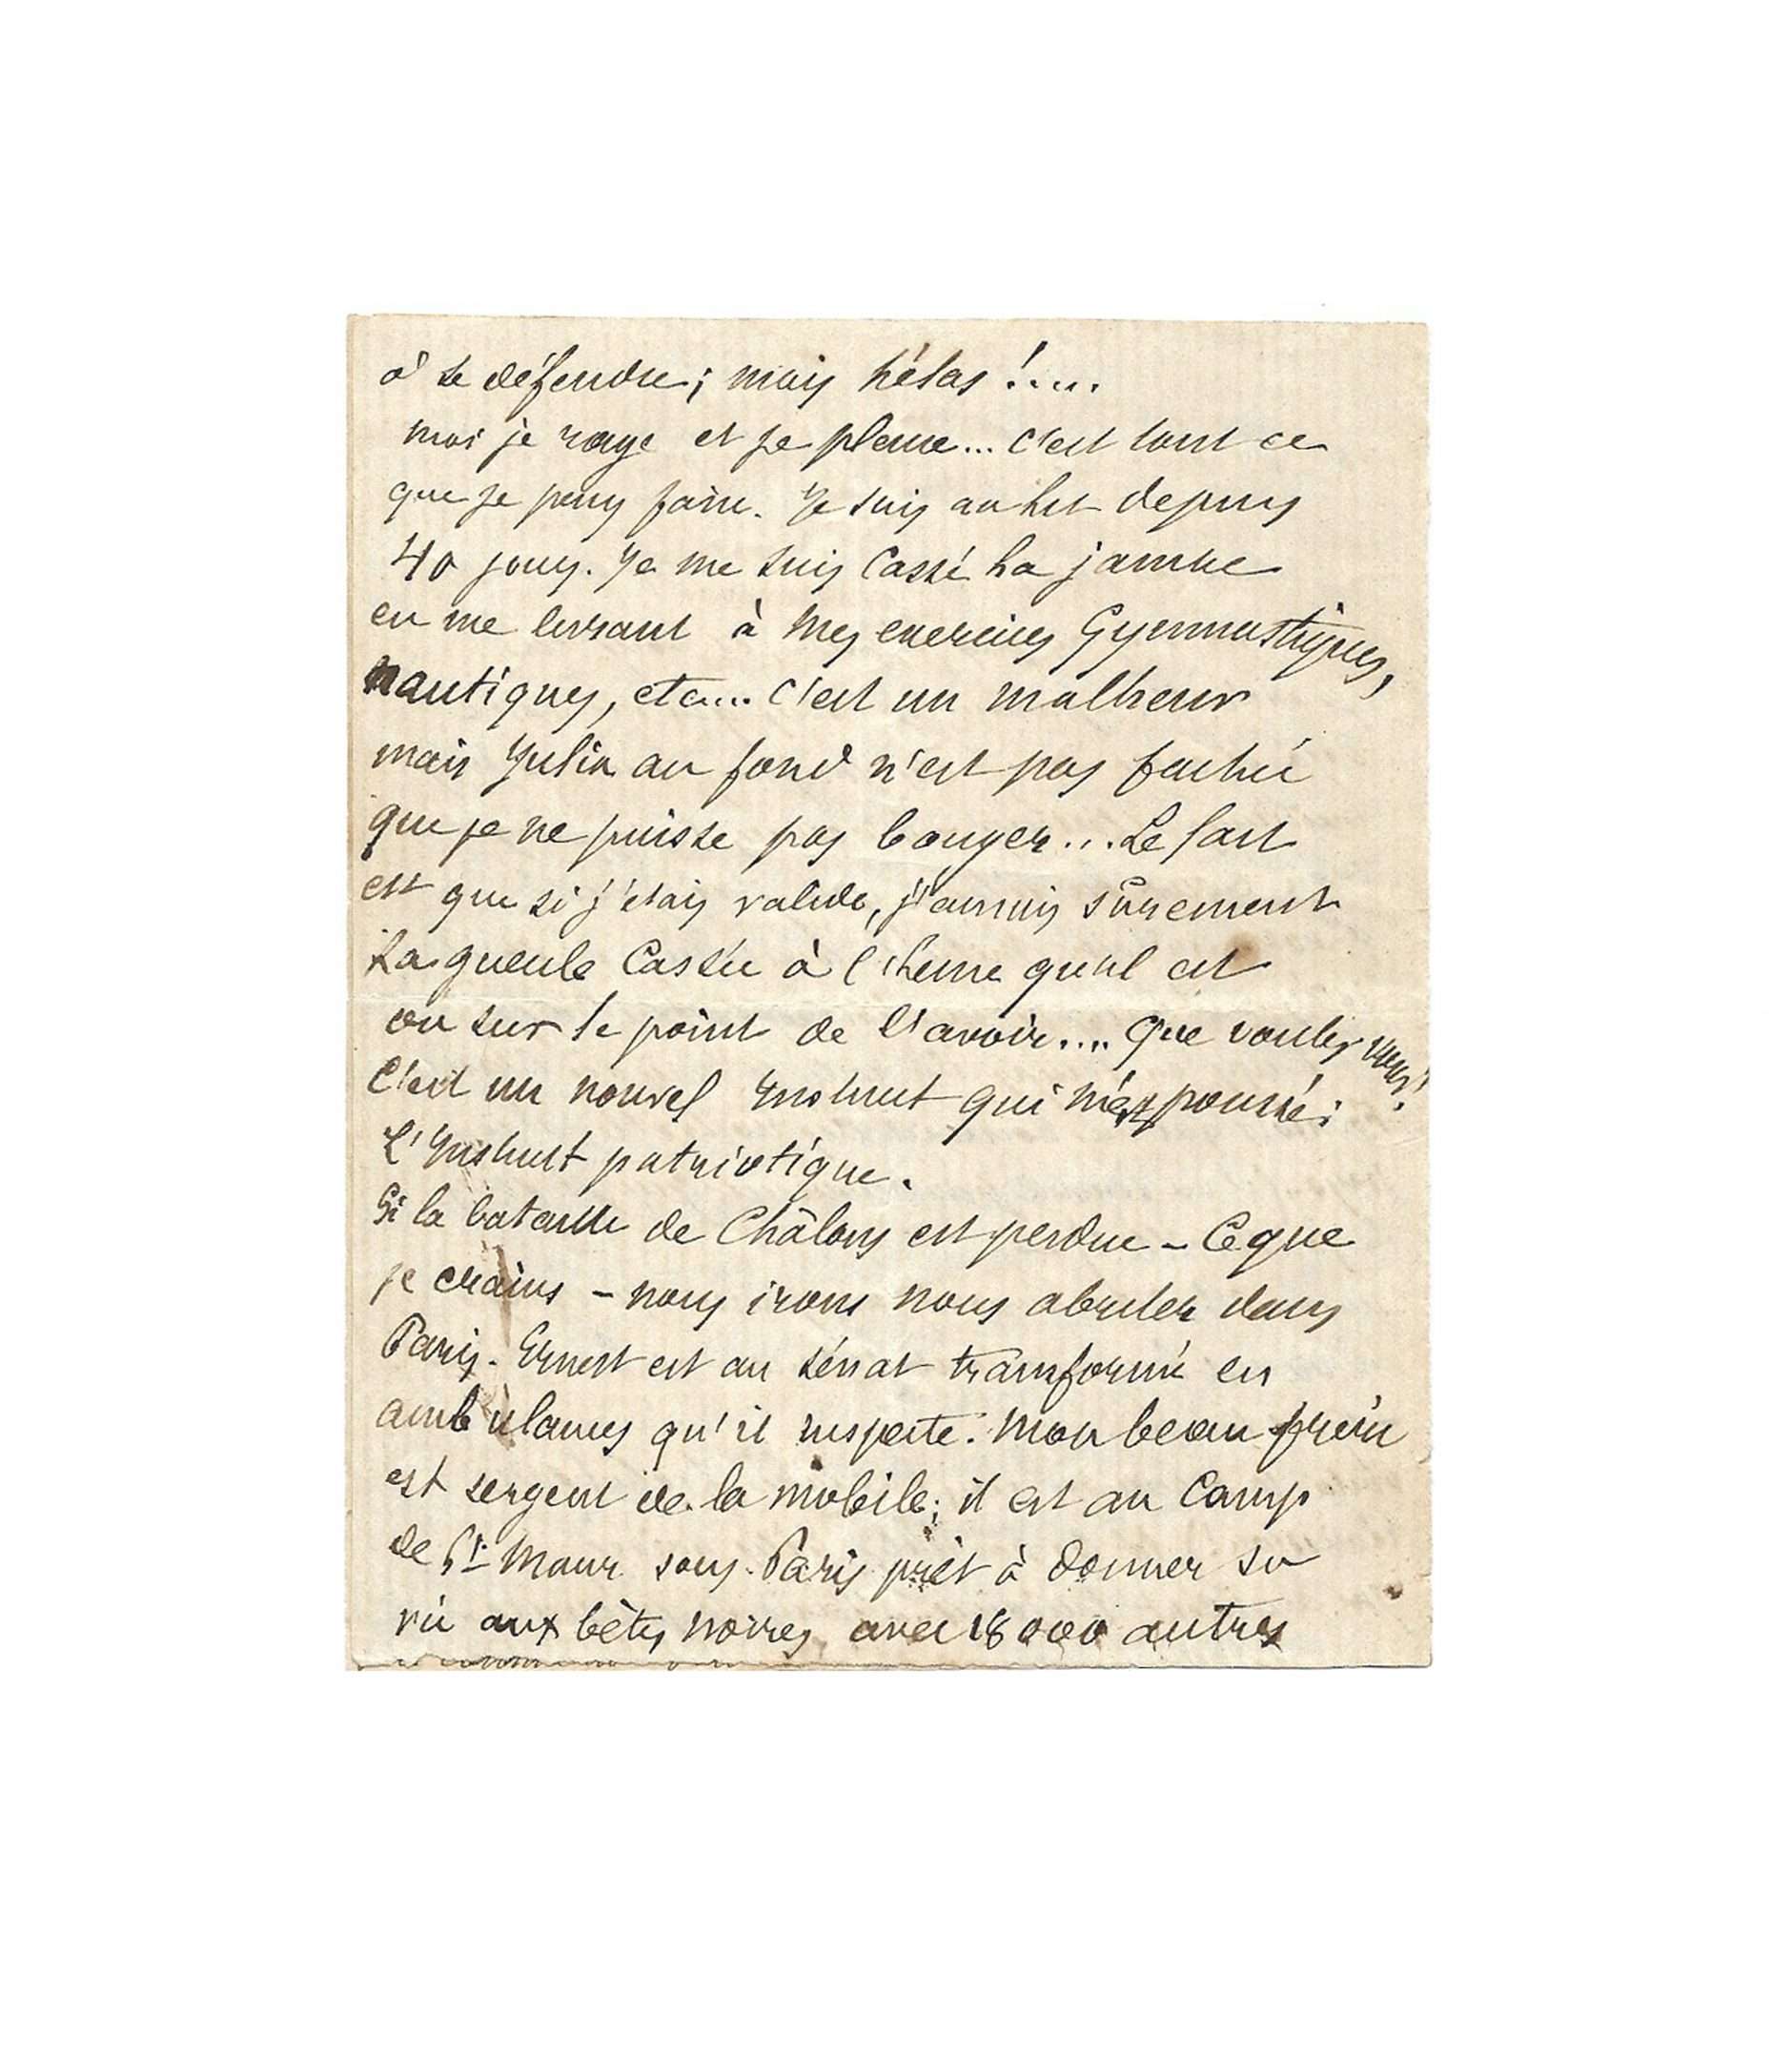 à se défendre; mais hélas !....
moi je rage et je pleure... c'est tout ce
que je peux faire. Je suis au lit depuis
40 jours. Je me suis cassé la jambe
en me livrant à mes exercices Gymnastiques,
nautiques, etc.... c'est un malheur
mais Julia au fond n'est pas fachée
que je ne puisse pas bouger... Le fait
est que si j'étais valide, j'aurais sûrement
la gueule cassée à l'heure qu'il est
ou sur le point de l'avoir.... Que voulez vous!
C'est un nouvel Instinct qui m'est poussé:
L'Instinct patriotique.
Si la bataille de Châlons est perdue - Ce que
je crains - nous irons nous abriter dans
Paris. Ernest est au sénat transformé en
ambulances qu'il inspecte. Mon beau frère
est sergent de la mobile; il est au Camp
de St Maur sous Paris prêt à donner sa
vie aux bêtes noires avec 18000 autres